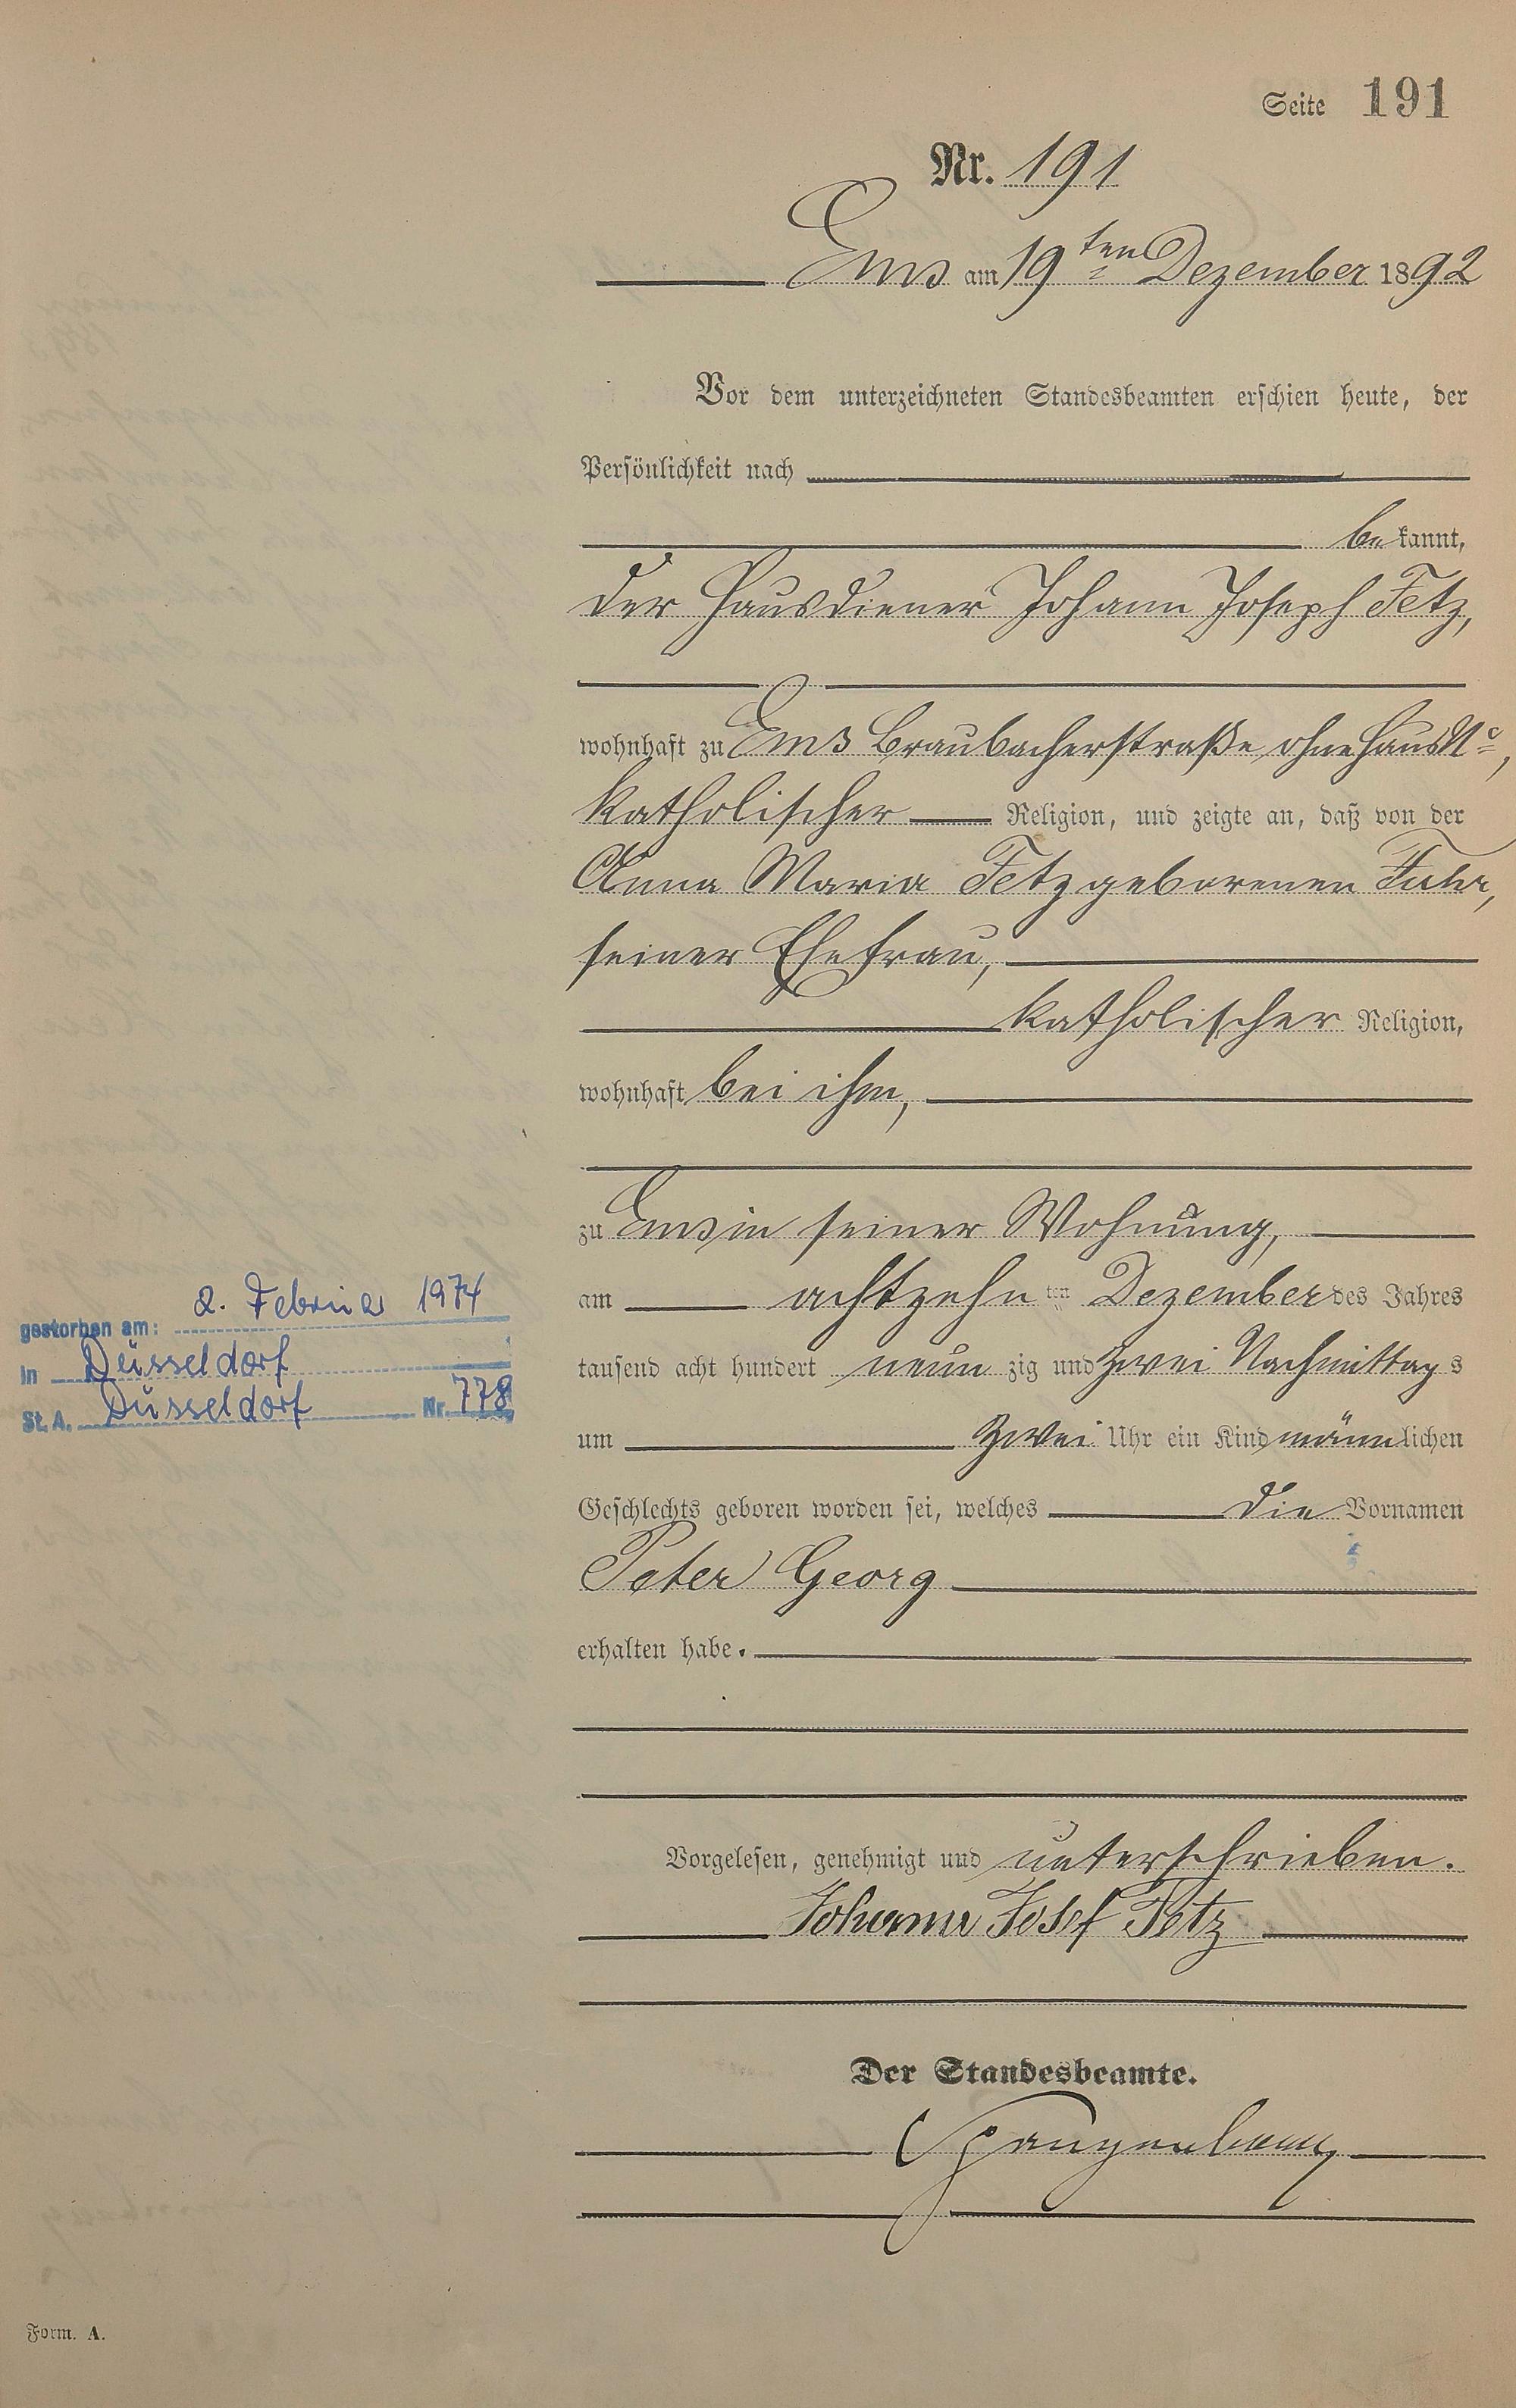 Seite 191
Nr. 191
Ems am 19ten Dezember 1892
Vor dem unterzeichneten Standesbeamten erschien heute, der
Persönlichkeit nach
bekannt,
der Hausdiener Johann Joseph Fetz,
wohnhaft zu Ems Braubacherstraße, ohne Haus No,
katholischer Religion, und zeigte an, daß von der
Anna Maria Fetz geborenen Fuhr,
seiner Ehefrau,
katholischer Religion,
wohnhaft bei ihm,
zu Ems in seiner Wohnung,
am achtzehnten Dezember des Jahres
tausend acht hundert neunzig und zwei Nachmittags
um zwei Uhr ein Kind männlichen
Geschlechts geboren worden sei, welches die Vornamen
Peter Georg
erhalten habe.
Vorgelesen, genehmigt und unterschrieben.
Johann Josef Fetz
Der Standesbeamte.
gestorben am: 2. Februar 1974
in Düsseldorf
St. A. Düsseldorf Nr. 778
Form. A.